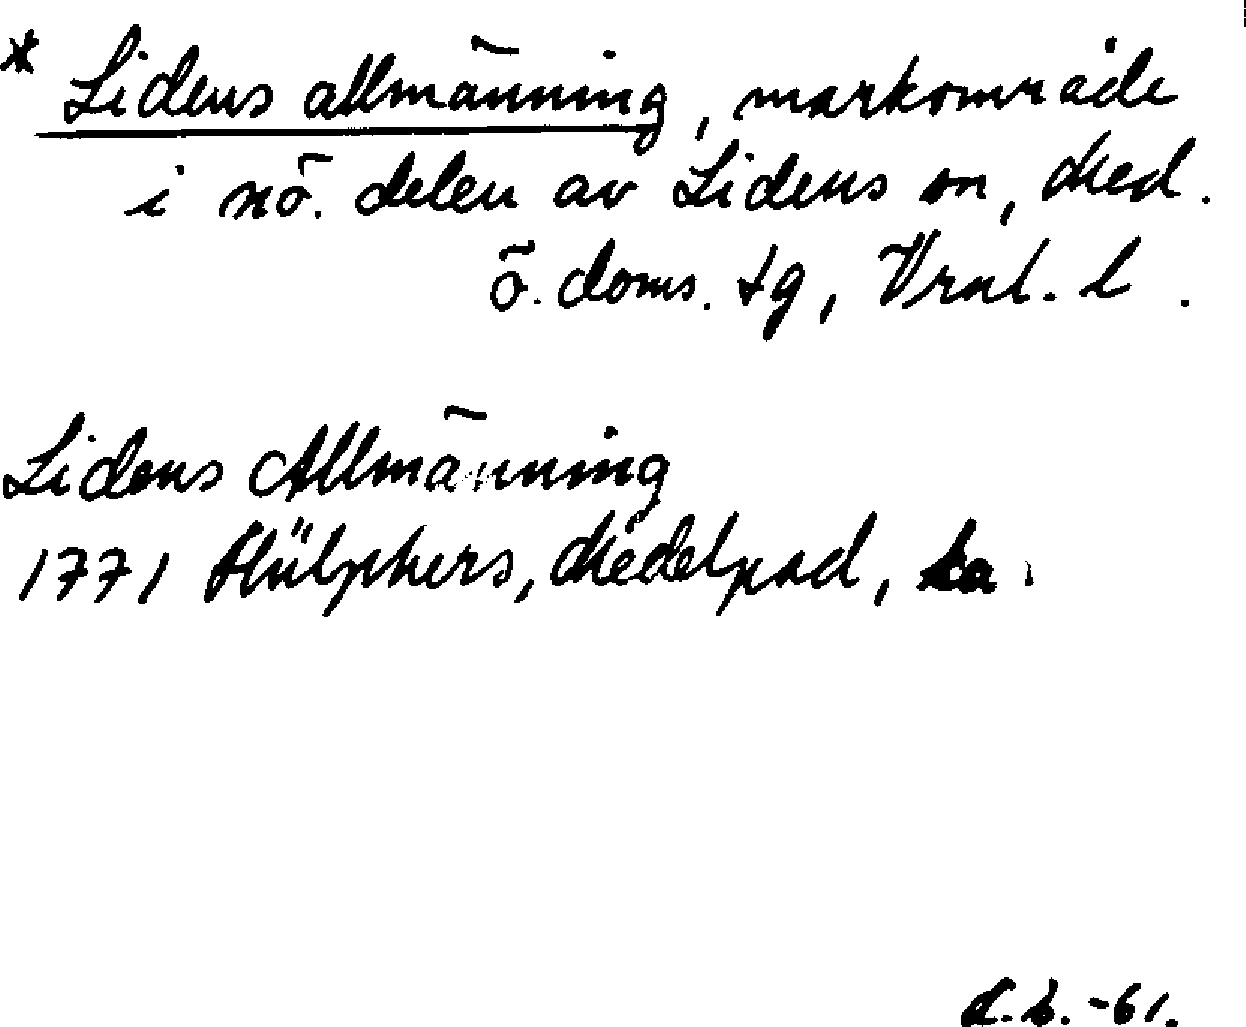 * Lidens allmänning, markområde
i nö. delen av Lidens sn, Med.
ö. doms. tg, Vrnl. l.
Lidens Allmänning
1771 Hülphers, Medelpad, ka.
-61.